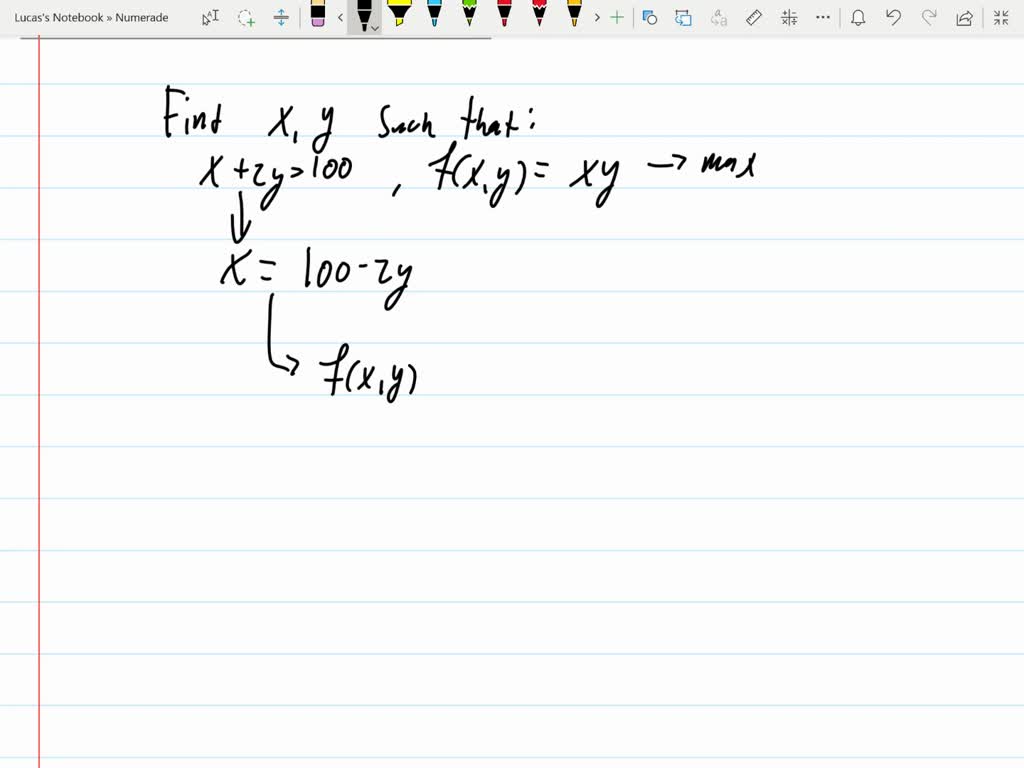 Lucas's Notebook » Numerade
Find x, y such that:
x + 2y = 100 , f(x,y) = xy → max
↓
x = 100 - 2y
↳ f(x,y)